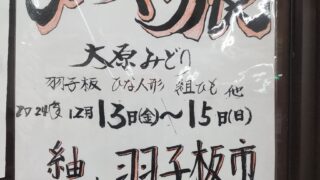 大原みどり
羽子板 ひな人形 組ひも 他
2024年12月13日(金)〜15日(日)
紬 羽子板市